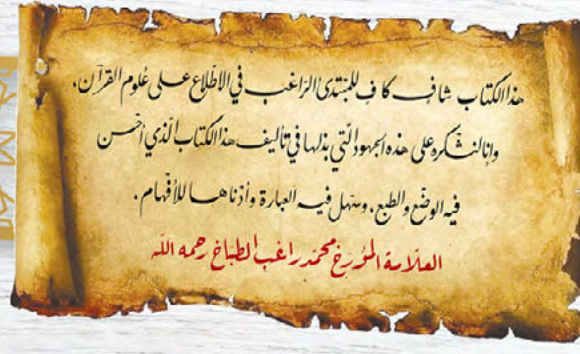 هذا الكتاب شافٍ كافٍ للمبتدئ الراغب في الاطّلاع على علوم القرآن،
وإنا لنشكره على هذه الجهود الّتي بذلها في تأليف هذا الكتاب الّذي أحسن
فيه الوضع والطبع، وسهل فيه العبارة وأدناها للأفهام.
العلّامة المؤرخ محمّد راغب الطباخ رحمه الله